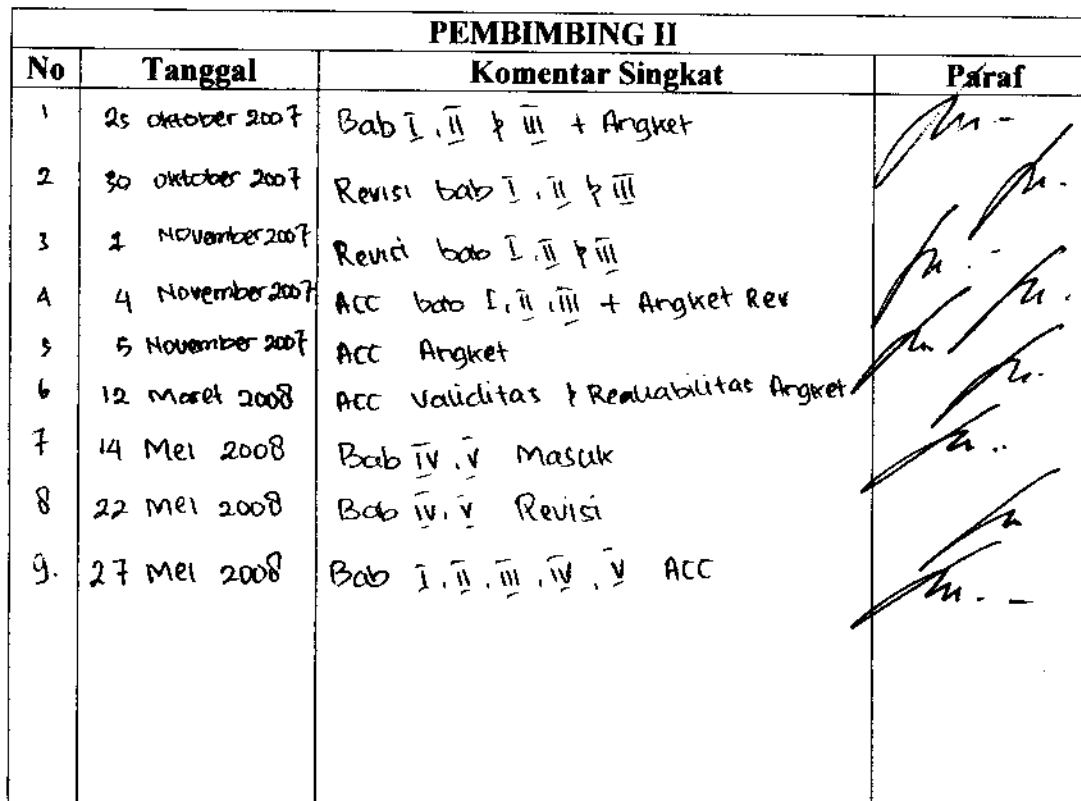 PEMBIMBING II
No Tanggal Komentar Singkat Paraf
1 25 oktober 2007 Bab I, II & III + Angket
2 30 oktober 2007 Revisi bab I, II & III
3 November 2007 Revisi bab I, II & III
4 4 November 2007 ACC bab I, II, III + Angket Rev
5 5 November 2007 ACC Angket
6 12 Maret 2008 ACC Validitas & Realiabilitas Angket
7 14 Mei 2008 Bab IV, V Masuk
8 22 Mei 2008 Bab IV, V Revisi
9. 27 Mei 2008 Bab I, II, III, IV, V ACC